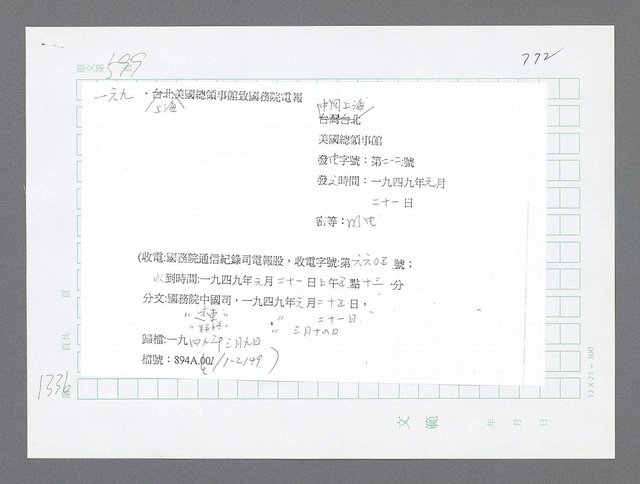 原文第 599 頁
772
一六九、台北美國總領事館致國務院電報
上海
中国上海
台灣台北
美國總領事館
發电字號：第二一二號
發文時間：一九四九年元月
二十一日
密等：明电
(收電:國務院通信紀錄司電報股，收電字號:第六六〇五號；
收到時間:一九四九年元月二十一日上午 點十三分
分文:國務院中國司，一九四九年元月二十五日，
〃 〃 二十一日
〃 〃 三月十四日
歸檔:一九四九年三月九日
檔號：894A.00/1-2149)
頁
頁共
1336
號
12 X 25 = 300
文 範
年 月 日